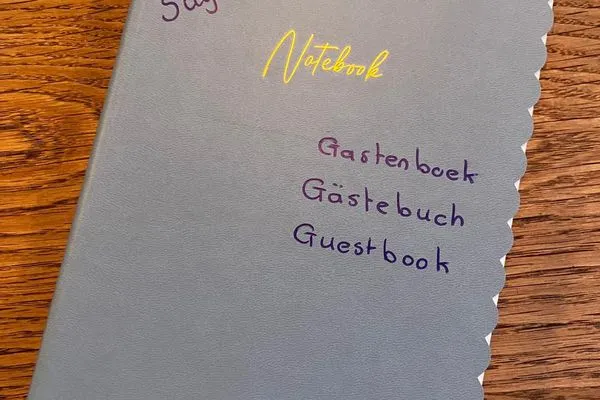 Notebook
Gastenboek
Gästebuch
Guestbook